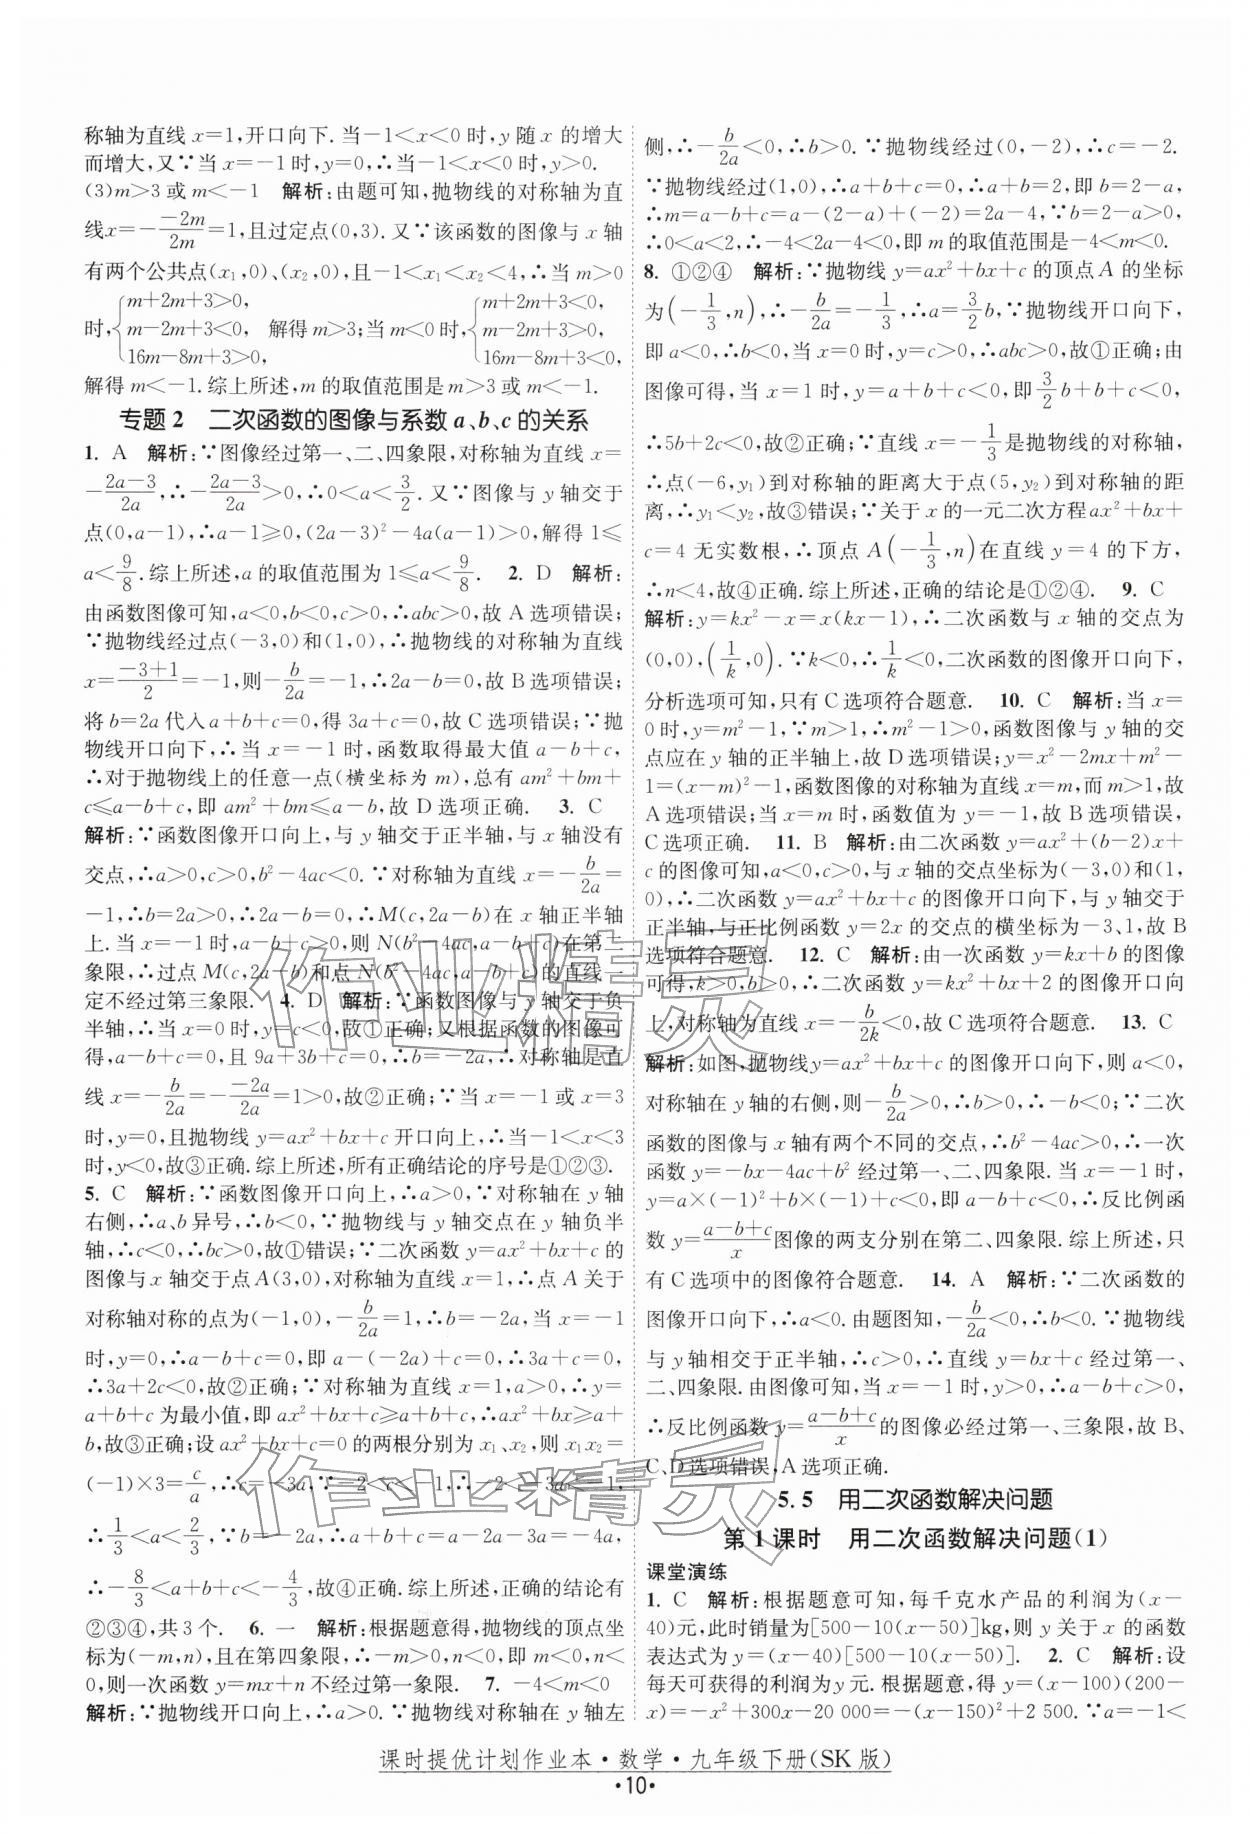 称轴为直线 x=1,开口向下. 当-1<x<0 时,y 随 x 的增大
而增大,又∵当 x=-1 时,y=0,∴当-1<x<0 时,y>0.
(3)m>3 或 m<-1 解析:由题可知,抛物线的对称轴为直
线x=-\frac{-2m}{2m}=1,且过定点(0,3). 又∵该函数的图像与 x 轴
有两个公共点(x₁,0)、(x₂,0),且-1<x₁<x₂<4,∴当 m>0
时,{m+2m+3>0, m-2m+3<0, 16m-8m+3>0, 解得 m>3;当 m<0 时,{m+2m+3<0, m-2m+3>0, 16m-8m+3<0,
解得 m<-1. 综上所述,m 的取值范围是 m>3 或 m<-1.
专题 2 二次函数的图像与系数 a、b、c 的关系
1. A 解析:∵图像经过第一、二、四象限,对称轴为直线 x=
-\frac{2a-3}{2a},∴-\frac{2a-3}{2a}>0,∴0<a<\frac{3}{2}. 又∵图像与 y 轴交于
点(0,a-1),∴a-1≥0,(2a-3)²-4a(a-1)>0,解得 1≤
a<\frac{9}{8}. 综上所述,a 的取值范围为 1≤a<\frac{9}{8}. 2. D 解析:
由函数图像可知,a<0,b<0,c>0,∴abc>0,故 A 选项错误;
∵抛物线经过点(-3,0)和(1,0),∴抛物线的对称轴为直线
x=\frac{-3+1}{2}=-1,则-\frac{b}{2a}=-1,∴2a-b=0,故 B 选项错误;
将 b=2a 代入 a+b+c=0,得 3a+c=0,故 C 选项错误;∵抛
物线开口向下,∴当 x=-1 时,函数取得最大值 a-b+c,
∴对于抛物线上的任意一点(横坐标为 m),总有 am²+bm+
c≤a-b+c,即 am²+bm≤a-b,故 D 选项正确. 3. C
解析:∵函数图像开口向上,与 y 轴交于正半轴,与 x 轴没有
交点,∴a>0,c>0,b²-4ac<0. ∵对称轴为直线 x=-\frac{b}{2a}=
-1,∴b=2a>0,∴2a-b=0,∴M(c,2a-b)在 x 轴正半轴
上. 当 x=-1 时,a-b+c>0,则 N(b²-4ac,a-b+c)在第二
象限,∴过点 M(c,2a-b)和点 N(b²-4ac,a-b+c)的直线一
定不经过第三象限. 4. D 解析:∵函数图像与 y 轴交于负
半轴,∴当 x=0 时,y=c<0,故①正确;又根据函数的图像可
得,a-b+c=0,且 9a+3b+c=0,∴b=-2a,∴对称轴是直
线 x=-\frac{b}{2a}=-\frac{-2a}{2a}=1>0,故②正确;∵当 x=-1 或 x=3
时,y=0,且抛物线 y=ax²+bx+c 开口向上,∴当-1<x<3
时,y<0,故③正确. 综上所述,所有正确结论的序号是①②③.
5. C 解析:∵函数图像开口向上,∴a>0,∵对称轴在 y 轴
右侧,∴a、b 异号,∴b<0,∵抛物线与 y 轴交点在 y 轴负半
轴,∴c<0,∴bc>0,故①错误;∵二次函数 y=ax²+bx+c 的
图像与 x 轴交于点 A(3,0),对称轴为直线 x=1,∴点 A 关于
对称轴对称的点为(-1,0),-\frac{b}{2a}=1,∴b=-2a,当 x=-1
时,y=0,∴a-b+c=0,即 a-(-2a)+c=0,∴3a+c=0,
∴3a+2c<0,故②正确;∵对称轴为直线 x=1,a>0,∴y=
a+b+c 为最小值,即 ax²+bx+c≥a+b+c,∴ax²+bx≥a+
b,故③正确;设 ax²+bx+c=0 的两根分别为 x₁、x₂,则 x₁x₂=
(-1)×3=\frac{c}{a},∴c=-3a,∵-2<c<-1,∴-2<-3a<-1,
∴\frac{1}{3}<a<\frac{2}{3},∵b=-2a,∴a+b+c=a-2a-3a=-4a,
∴-\frac{8}{3}<a+b+c<-\frac{4}{3},故④正确. 综上所述,正确的结论有
②③④,共 3 个. 6. 一 解析:根据题意得,抛物线的顶点坐
标为(-m,n),且在第四象限,∴-m>0,n<0,即 m<0,n<
0,则一次函数 y=mx+n 不经过第一象限. 7. -4<m<0
解析:∵抛物线开口向上,∴a>0. ∵抛物线对称轴在 y 轴左
侧,∴-\frac{b}{2a}<0,∴b>0. ∵抛物线经过(0,-2),∴c=-2.
∵抛物线经过(1,0),∴a+b+c=0,∴a+b=2,即 b=2-a,
∴m=a-b+c=a-(2-a)+(-2)=2a-4,∵b=2-a>0,
∴0<a<2,∴-4<2a-4<0,即 m 的取值范围是-4<m<0.
8. ①②④ 解析:∵抛物线 y=ax²+bx+c 的顶点 A 的坐标
为(-\frac{1}{3},n),∴-\frac{b}{2a}=-\frac{1}{3},∴a=\frac{3}{2}b,∵抛物线开口向下,
即 a<0,∴b<0,当 x=0 时,y=c>0,∴abc>0,故①正确;由
图像可得,当 x=1 时,y=a+b+c<0,即\frac{3}{2}b+b+c<0,
∴5b+2c<0,故②正确;∵直线 x=-\frac{1}{3}是抛物线的对称轴,
∴点(-6,y₁)到对称轴的距离大于点(5,y₂)到对称轴的距
离,∴y₁<y₂,故③错误;∵关于 x 的一元二次方程 ax²+bx+
c=4 无实数根,∴顶点 A(-\frac{1}{3},n)在直线 y=4 的下方,
∴n<4,故④正确. 综上所述,正确的结论是①②④. 9. C
解析:y=kx²-x=x(kx-1),∴二次函数与 x 轴的交点为
(0,0),(\frac{1}{k},0). ∵k<0,∴\frac{1}{k}<0,二次函数的图像开口向下,
分析选项可知,只有 C 选项符合题意. 10. C 解析:当 x=
0 时,y=m²-1,∵m>1,∴m²-1>0,函数图像与 y 轴的交
点应在 y 轴的正半轴上,故 D 选项错误;y=x²-2mx+m²-
1=(x-m)²-1,函数图像的对称轴为直线 x=m,而 m>1,故
A 选项错误;当 x=m 时,函数值为 y=-1,故 B 选项错误,
C 选项正确. 11. B 解析:由二次函数 y=ax²+(b-2)x+
c 的图像可知,a<0,c>0,与 x 轴的交点坐标为(-3,0)和(1,
0),∴二次函数 y=ax²+bx+c 的图像开口向下,与 y 轴交于
正半轴,与正比例函数 y=2x 的交点的横坐标为-3、1,故 B
选项符合题意. 12. C 解析:由一次函数 y=kx+b 的图像
可得,k>0,b>0,∴二次函数 y=kx²+bx+2 的图像开口向
上,对称轴为直线 x=-\frac{b}{2k}<0,故 C 选项符合题意. 13. C
解析:如图,抛物线 y=ax²+bx+c 的图像开口向下,则 a<0,
对称轴在 y 轴的右侧,则-\frac{b}{2a}>0,∴b>0,∴-b<0;∵二次
函数的图像与 x 轴有两个不同的交点,∴b²-4ac>0,∴一次
函数 y=-bx-4ac+b² 经过第一、二、四象限. 当 x=-1 时,
y=a×(-1)²+b×(-1)+c<0,即 a-b+c<0,∴反比例函
数 y=\frac{a-b+c}{x}图像的两支分别在第二、四象限. 综上所述,只
有 C 选项中的图像符合题意. 14. A 解析:∵二次函数的
图像开口向下,∴a<0. 由题图知,-\frac{b}{2a}<0,∴b<0. ∵抛物线
与 y 轴相交于正半轴,∴c>0,∴直线 y=bx+c 经过第一、
二、四象限. 由图像可知,当 x=-1 时,y>0,∴a-b+c>0,
∴反比例函数 y=\frac{a-b+c}{x}的图像必经过第一、三象限,故 B、
C、D 选项错误,A 选项正确.
5.5 用二次函数解决问题
第 1 课时 用二次函数解决问题(1)
课堂演练
1. C 解析:根据题意可知,每千克水产品的利润为(x-
40)元,此时销量为[500-10(x-50)]kg,则 y 关于 x 的函数
表达式为 y=(x-40)[500-10(x-50)]. 2. C 解析:设
每天可获得的利润为 y 元. 根据题意,得 y=(x-100)(200-
x)=-x²+300x-20 000=-(x-150)²+2 500. ∵-1<
课时提优计划作业本·数学·九年级下册(SK 版)
·10·
作业精灵
作业精灵